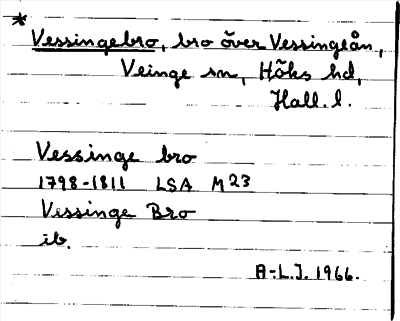 *
Vessingebro, bro över Vessingeån,
Veinge sn, Höks hd,
Hall. l.
Vessinge bro
1798-1811 LSA M23
Vessinge Bro
ib.
A-L.J. 1966.